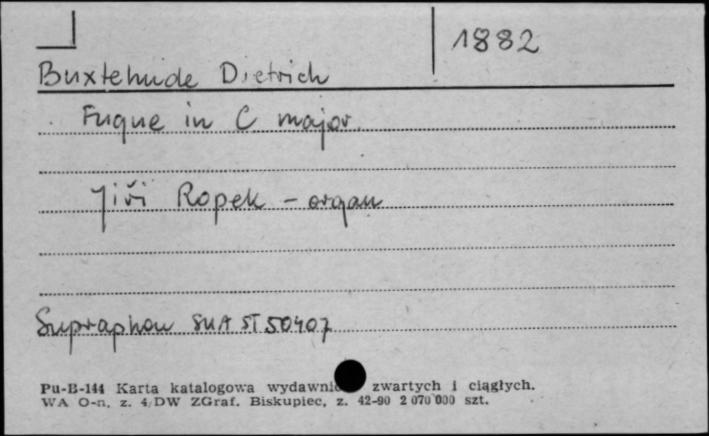 1882
Buxtehude Dietrich
Fugue in C major.
Jiři Ropek - organ
Supraphon SUA ST 50407
Pu-B-144 Karta katalogowa zwartych i ciągłych.
WA O-n, z. 4/DW ZGraf. Biskupiec, z. 42-90 2 070 000 szt.